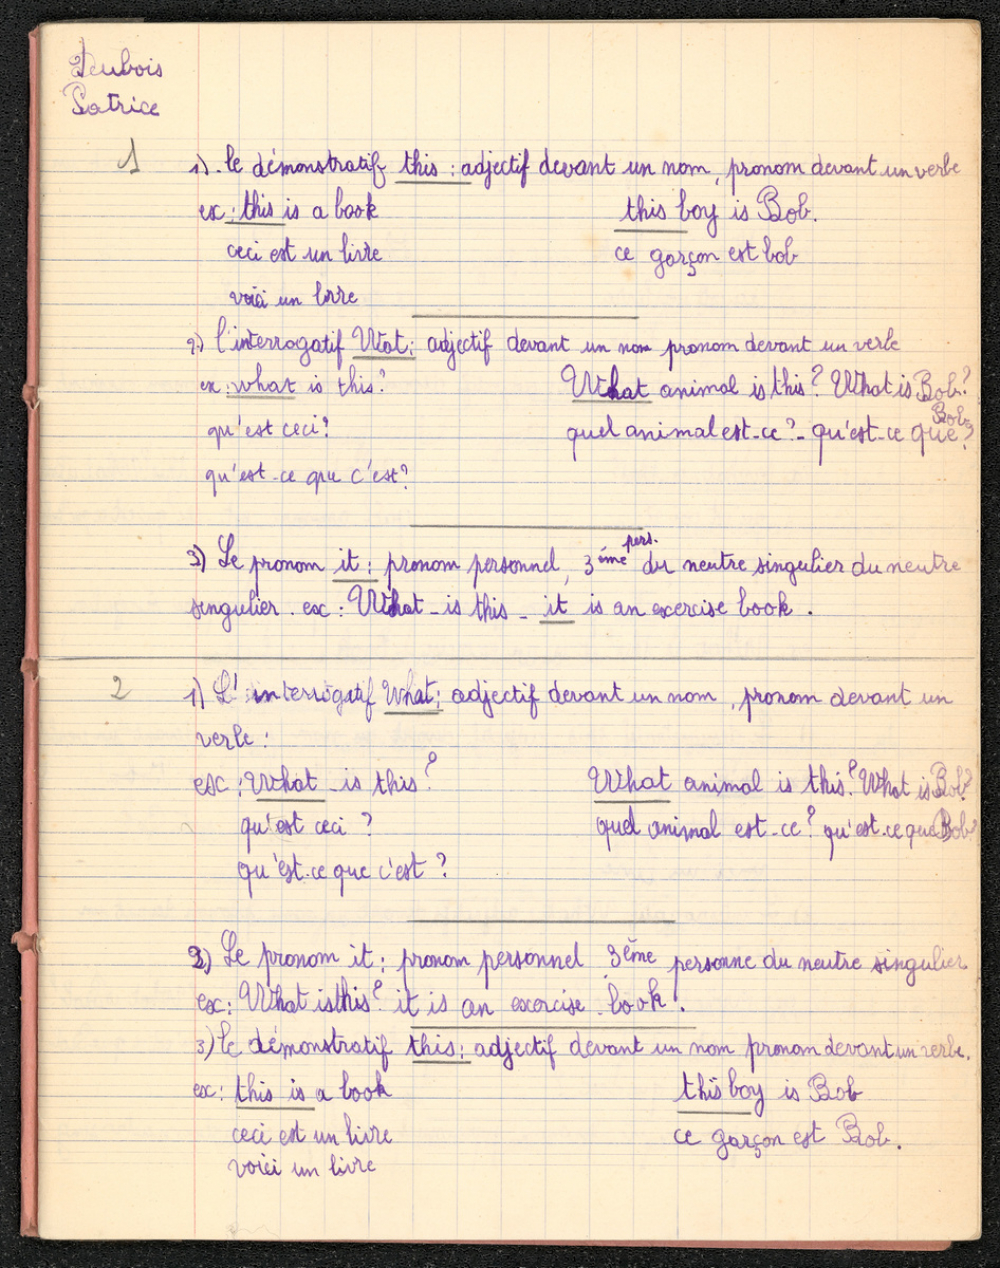 Dubois
Patrice
1
1). le démonstratif this : adjectif devant un nom, pronom devant un verbe
ex : this is a book this boy is Bob.
ceci est un livre ce garçon est bob
voici un livre
2) l'interrogatif What : adjectif devant un nom pronom devant un verbe
ex : what is this? What animal is this? What is Bob?
qu'est ceci? quel animal est-ce? - qu'est-ce que Bob?
qu'est-ce que c'est?
3) Le pronom it : pronom personnel, 3ème pers. du neutre singulier du neutre
singulier. ex : What - is this - it is an exercise book.
2
1) L'interrogatif What : adjectif devant un nom, pronom devant un
verbe :
ex : What - is this? What animal is this? What is Bob?
qu'est ceci ? quel animal est-ce? qu'est-ce que Bob?
qu'est-ce que c'est ?
2) Le pronom it : pronom personnel 3ème personne du neutre singulier
ex : What is this? it is an exercise-book.
3) le démonstratif this : adjectif devant un nom pronom devant un verbe.
ex : this is a book this boy is Bob
ceci est un livre ce garçon est Bob.
voici un livre